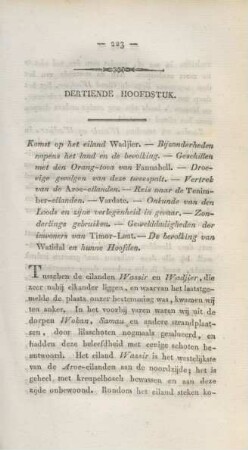 — 223 —
DERTIENDE HOOFDSTUK.
Komst op het eiland Wadjier. — Bijzonderheden
nopens het land en de bevolking. — Geschillen
met den Orang-toua van Fannabell. — Droe-
vige gevolgen van deze tweespalt. — Vertrek
van de Aroe-eilanden. — Reis naar de Tenim-
ber-eilanden. — Vordate. — Onkunde van den
Loods en zijne verlegenheid in gevaar. — Zon-
derlinge gebruiken. — Gewelddadigheden der
inwoners van Timor-Laut. — De bevolking van
Watidal en hunne Hoofden.
Tusschen de eilanden Wassir en Wadjier, die
zeer nabij elkander liggen, en waarvan het laatstge-
melde de plaats onzer bestemming was, kwamen wij
ten anker. In het voorbij varen waren wij uit de
dorpen Woban, Samau en andere strandplaat-
sen, door lilaschoten nogmaals gesalueerd, en
hadden deze beleefdheid met eenige schoten be-
antwoord. Het eiland Wassir is het westelijkste
van de Aroe-eilanden aan de noordzijde; het is
geheel met kreupelbosch bewassen en aan deze
zijde onbewoond. Rondom het eiland steken ko-